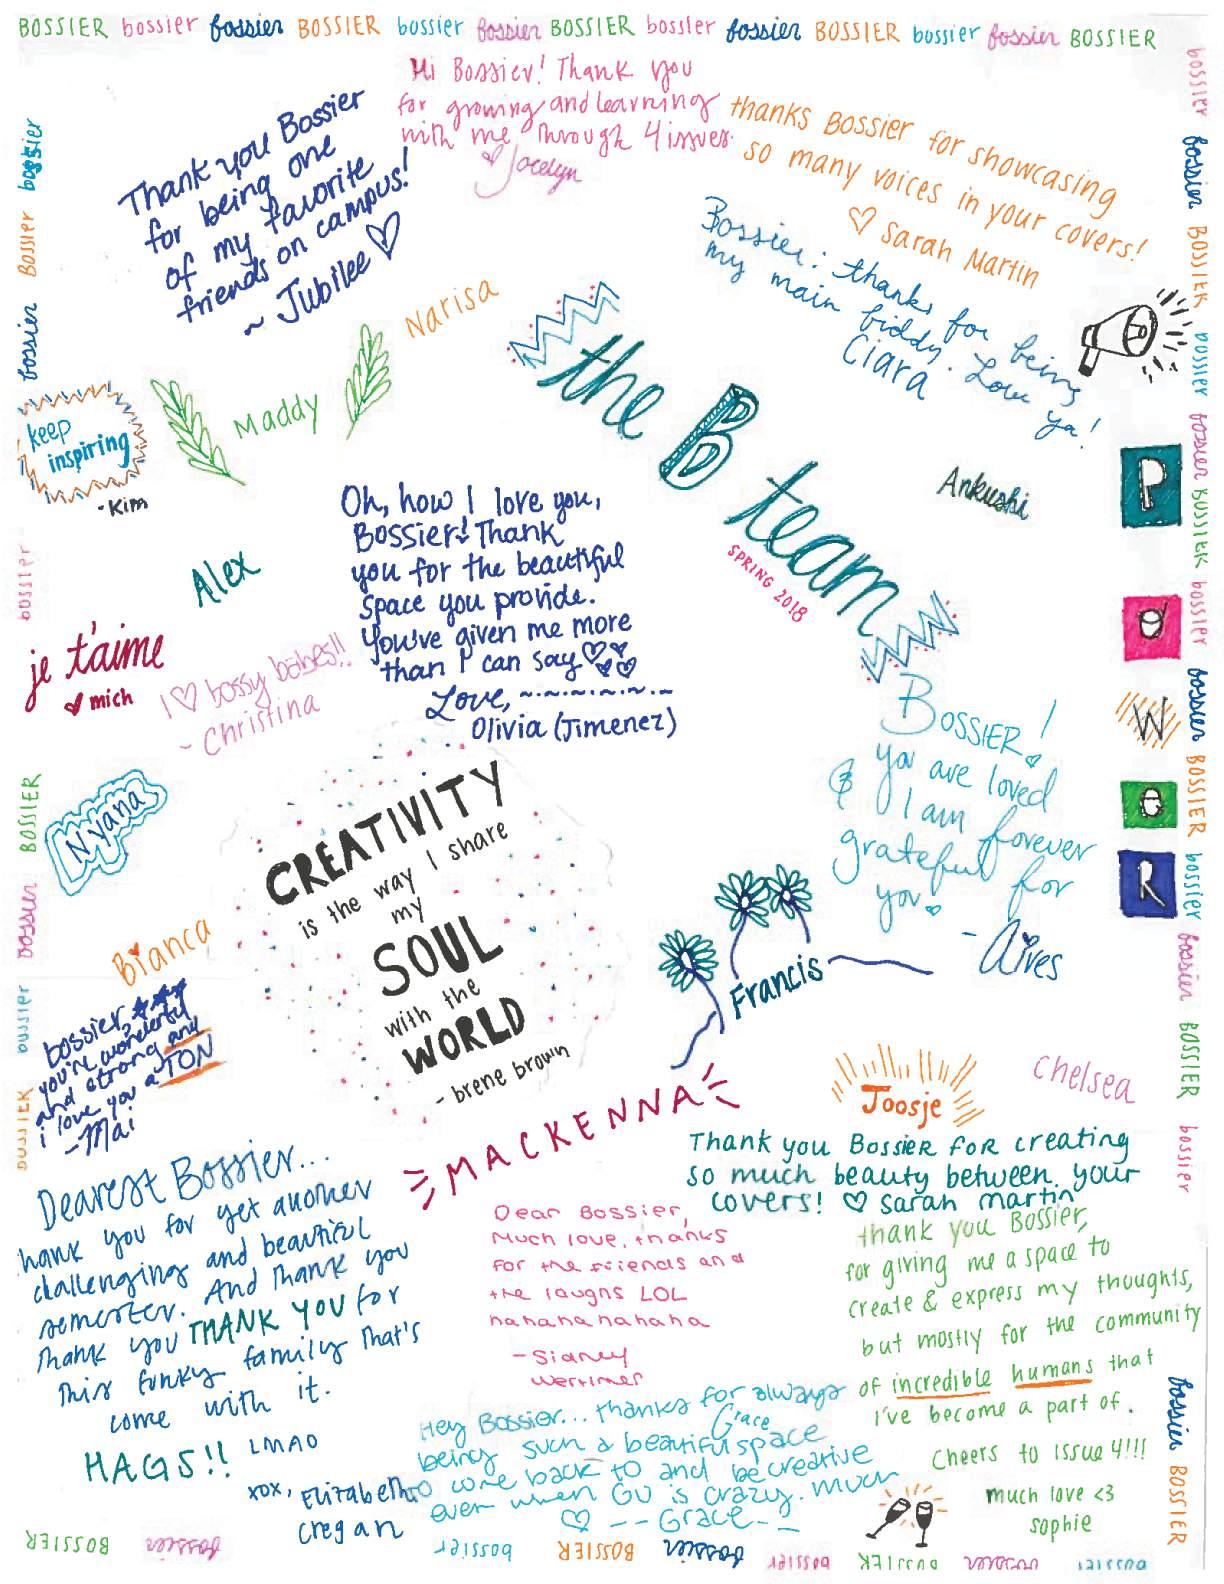 BOSSIER bossier bossier BOSSIER bossier bossier BOSSIER bossier bossier BOSSIER bossier bossier BOSSIER
Hi Bossier! Thank you
for growing and learning
with me through 4 issues.
♡ Jocelyn
Thank you Bossier
for being one
of my favorite
friends on campus!
~ Jubilee ♡
thanks Bossier for showcasing
so many voices in your covers!
♡ Sarah Martin
Bossier: thanks for being
my main biddy. Love ya!
Ciara
Narisa
Maddy
keep
inspiring
-Kim
the B team
SPRING 2018
Ankushi
POWER
Alex
Oh, how I love you,
Bossier! Thank
you for the beautiful
space you provide.
You've given me more
than I can say ♡♡♡♡
Love,
Olivia (Jimenez)
je t'aime
mich
I ♡ bossy babes!!
- Christina
BOSSIER!
you are loved
& I am forever
grateful for
you.
- Aives
Nyana
CREATIVITY
is the way I share
my
SOUL
with the
WORLD
- brene brown
Bianca
Francis
bossier,
you're wonderful
and strong and
i love you a TON
-Mai
MACKENNA
Joosje
Chelsea
Thank you Bossier for creating
so much beauty between your
covers! ♡ Sarah Martin
Dearest Bossier...
thank you for yet another
challenging and beautiful
semester. And thank you
thank you THANK YOU for
this funky family that's
come with it.
HAGS!! LMAO
xox, Elizabeth
Cregan
Dear Bossier,
Much love, thanks
for the friends and
the laughs LOL
hahahahahaha
- Sidney
Wertimer
thank you Bossier,
for giving me a space to
create & express my thoughts,
but mostly for the community
of incredible humans that
i've become a part of.
Cheers to issue 4!!!
much love <3
sophie
Hey Bossier... thanks for always
Grace
being such a beautiful space
to come back to and be creative
even when GU is crazy. Much
♡ -- Grace --
bossier
BOSSIER
bossier
bossier
BOSSIER
bossier
BOSSIER
bossier
bossier
BOSSIER
bossier
bossier
BOSSIER
bossier
bossier
BOSSIER
bossier
bossier
BOSSIER
bossier
bossier
BOSSIER
bossier
bossier
BOSSIER
bossier
bossier
BOSSIER
BOSSIER bossier bossier BOSSIER bossier bossier BOSSIER bossier bossier